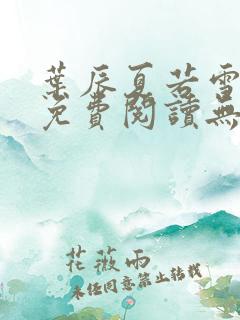 葉辰夏若雪
免費閱讀無
花薇雨
未經同意禁止轉載